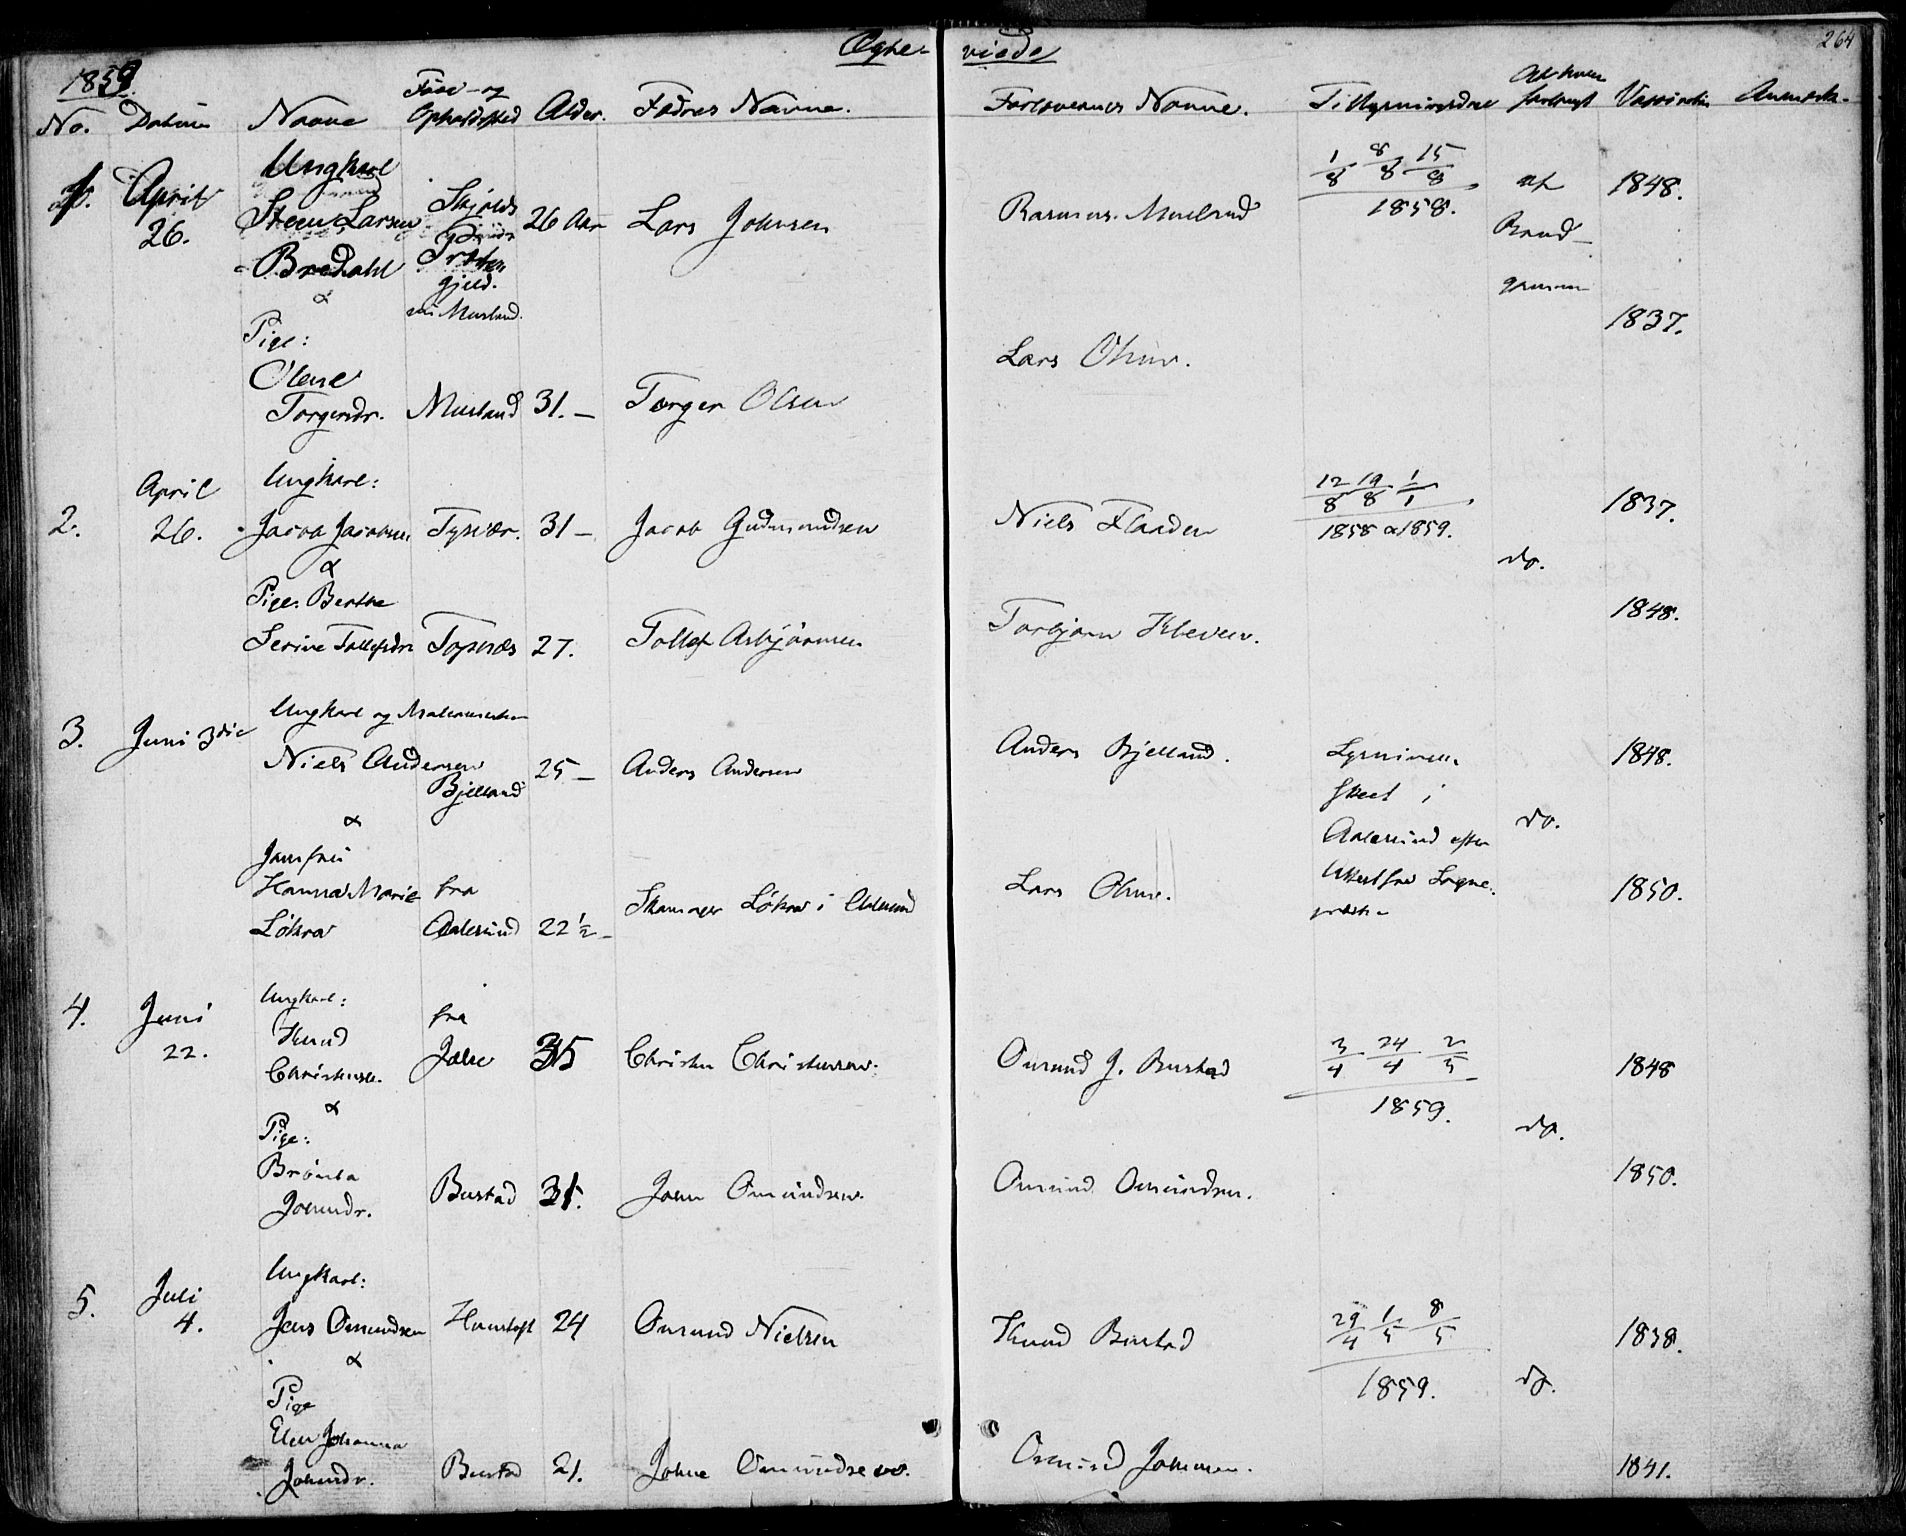 264
Ægte- viede
1859.
No. Datum Navne Føde- og Opholdssted Alder. Fædres Navne. Forlovernes Navne. Tillysningsdage Vaccination Anmærk.
1. April 26. Ungkarl
Steen Larsen Skjolds 26 Aar Lars Johnsen Rasmus Musland 1/8 8/8 15/8 1858. af Brud- gommen 1848.
Bredahl Præste gjeld.
&
Pige:
Olene
Torgersdr. Musland 31.- Torger Olsen Lars Olsen. 1837.
2. April 26. Ungkarl:
Jacob Jacobsen Tysvær. 31- Jacob Gudmundsen Niels Flaaden 12/8 19/8 1/1 1858 & 1859. do. 1837.
&
Pige: Berthe
Serine Tollefsdr Topnæs 27. Tollef Asbjørnsen Torbjørn Kleven. 1848.
3. Juni 3die Ungkarl og
Niels Andersen Bjelland 25- Anders Andersen Anders Bjelland. Lysninger skeet i Aalesund efter do. 1848.
&
Jomfru
Hanna Marie fra
Løkra Aalesund 22 1/2- Løkra i Aalesund Lars Olsen. 1850.
4. Juni 22. Ungkarl:
Knud fra
Christensen. Jælse 35 Christen Christensen. Omund J. Bustad 3/4 24/4 2/5 1859. do. 1848
&
Pige:
Brønla
Johnsdr. Bustad 31. John Omundsen. Omund Omundsen. 1850.
5. Juli 4. Ungkarl:
Jens Omundsen 24 Omund Nielsen Knud Bustad 29/4 1/5 8/5 1859. do. 1838.
&
Pige
Elen Johanna
Johnsdr. Bustad 21. Johne Omundsen. Omund Johnsen. 1841.